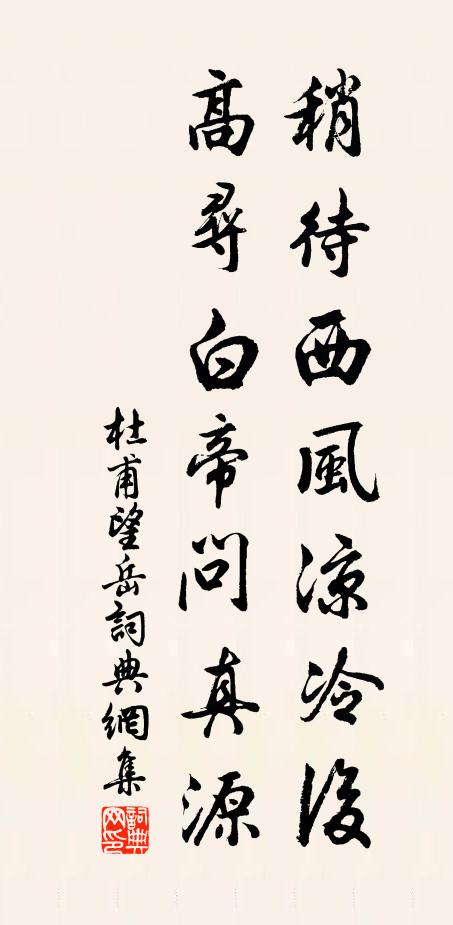 稍待西風凉冷後
高尋白帝問真源
杜甫望岳詞典網集
詞典网印